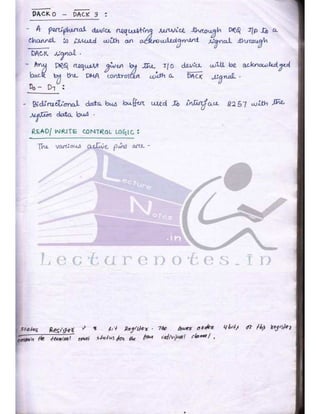 DACK0 - DACK 3 :
- A peripheral device requesting service through DRQ I/p to a
channel is issued with an acknowledgment signal through
DACK signal.
- Any DRQ request given by the I/O device will be acknowledged
back by the DMA controller with a DACK signal.
D0 - D7 :
- Bidirectional data bus buffer used to interface 8257 with the
system data bus.
READ/ WRITE CONTROL LOGIC :
The various active pins are -
Lecture
Notes
.in
Lecturenotes.in
Status Register 8 bit Register. The lower order 4 bits of this register
contain the terminal count status for the four individual channel.